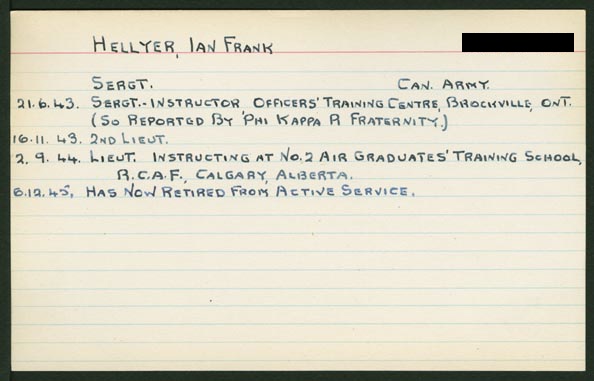 HELLYER, IAN FRANK
SERGT. CAN. ARMY.
21.6.43. SERGT.-INSTRUCTOR OFFICERS' TRAINING CENTRE, BROCKVILLE, ONT.
(SO REPORTED BY PHI KAPPA PI FRATERNITY.)
16.11.43. 2ND LIEUT.
2.9.44. LIEUT. INSTRUCTING AT NO.2 AIR GRADUATES' TRAINING SCHOOL,
R.C.A.F., CALGARY, ALBERTA.
6.12.45, HAS NOW RETIRED FROM ACTIVE SERVICE.